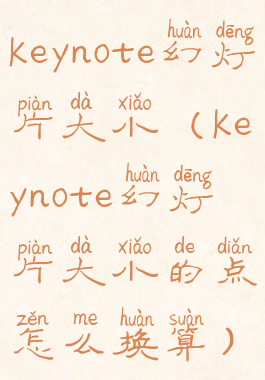 huàn dēng
keynote幻灯
piàn dà xiǎo
片大小(ke
huàn dēng
ynote幻灯
piàn dà xiǎo de diǎn
片大小的点
zěn me huàn suàn
怎么换算)